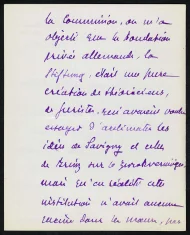 la Commission, on m'a
objecté que la fondation
privée allemande, la
Stiftung, était une pure
création de théoriciens,
de juristes, qui avaient voulu
essayer d'acclimater les
idées de Savigny et celles
de Brinz sur le Zweckvermögen,
mais qu'en réalité cette
institution n'avait aucune
racine dans les mœurs,